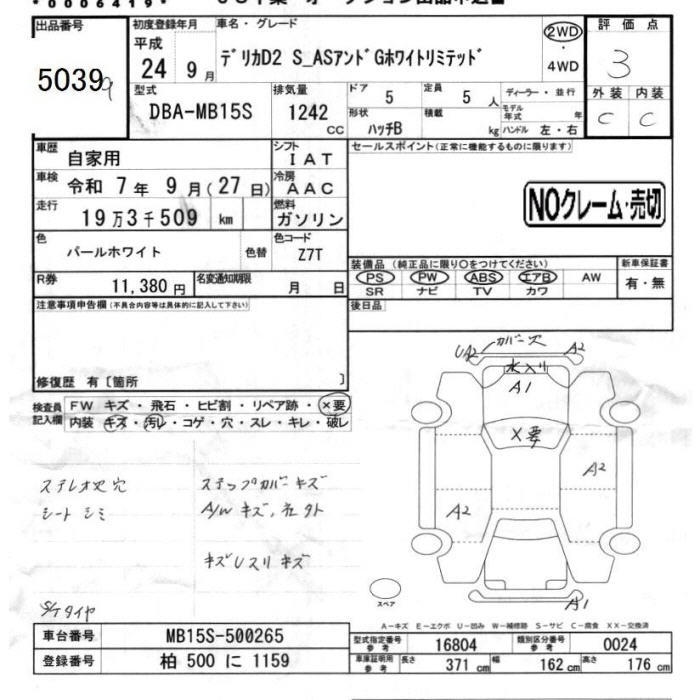 *0006419*
出品番号
50399
初度登録年月
平成
24 9 月
車名・グレード
デリカD2 S_ASアンドGホワイトリミテッド
2WD
・
4WD
評価点
3
外装 内装
C C
型式
DBA-MB15S
排気量
1242
CC
ドア
5
定員
5 人
形状
ハッチB
積載
kg
ディーラー・並行
モデル年式
年
ハンドル 左・右
車歴
自家用
シフト
IAT
車検
令和 7 年 9 月(27 日)
冷房
AAC
走行
19 万 3 千 509 km
燃料
ガソリン
色
パールホワイト
色替
色コード
Z7T
R券
11,380 円
名変通知期限
月 日
セールスポイント(正常に機能するものに限ります)
NOクレーム・売切
装備品(純正品に限り○をつけてください)
PS PW ABS エアB AW
SR ナビ TV カワ
新車保証書
有・無
後日品
注意事項申告欄(不具合内容等は具体的に記入して下さい)
修復歴 有〔箇所 〕
検査員
記入欄
FW キズ・飛石・ヒビ割・リペア跡・×要
内装 キズ・汚レ・コゲ・穴・スレ・キレ・破レ
ステレオ地穴
シートシミ
S/Tタイヤ
ステップカバーキズ
A/Wキズ,
キズUスリキズ
UA2
カバー穴
A2
水入り
A1
×要
A2
A2
A1
スペア
A-キズ E-エクボ U-凹み W-補修跡 S-サビ C-腐食 XX-交換済
車台番号
MB15S-500265
登録番号
柏 500 に 1159
型式指定番号
参考
16804
類別区分番号
参考
0024
車庫証明用
参考
長さ
371 cm
幅
162 cm
高さ
176 cm